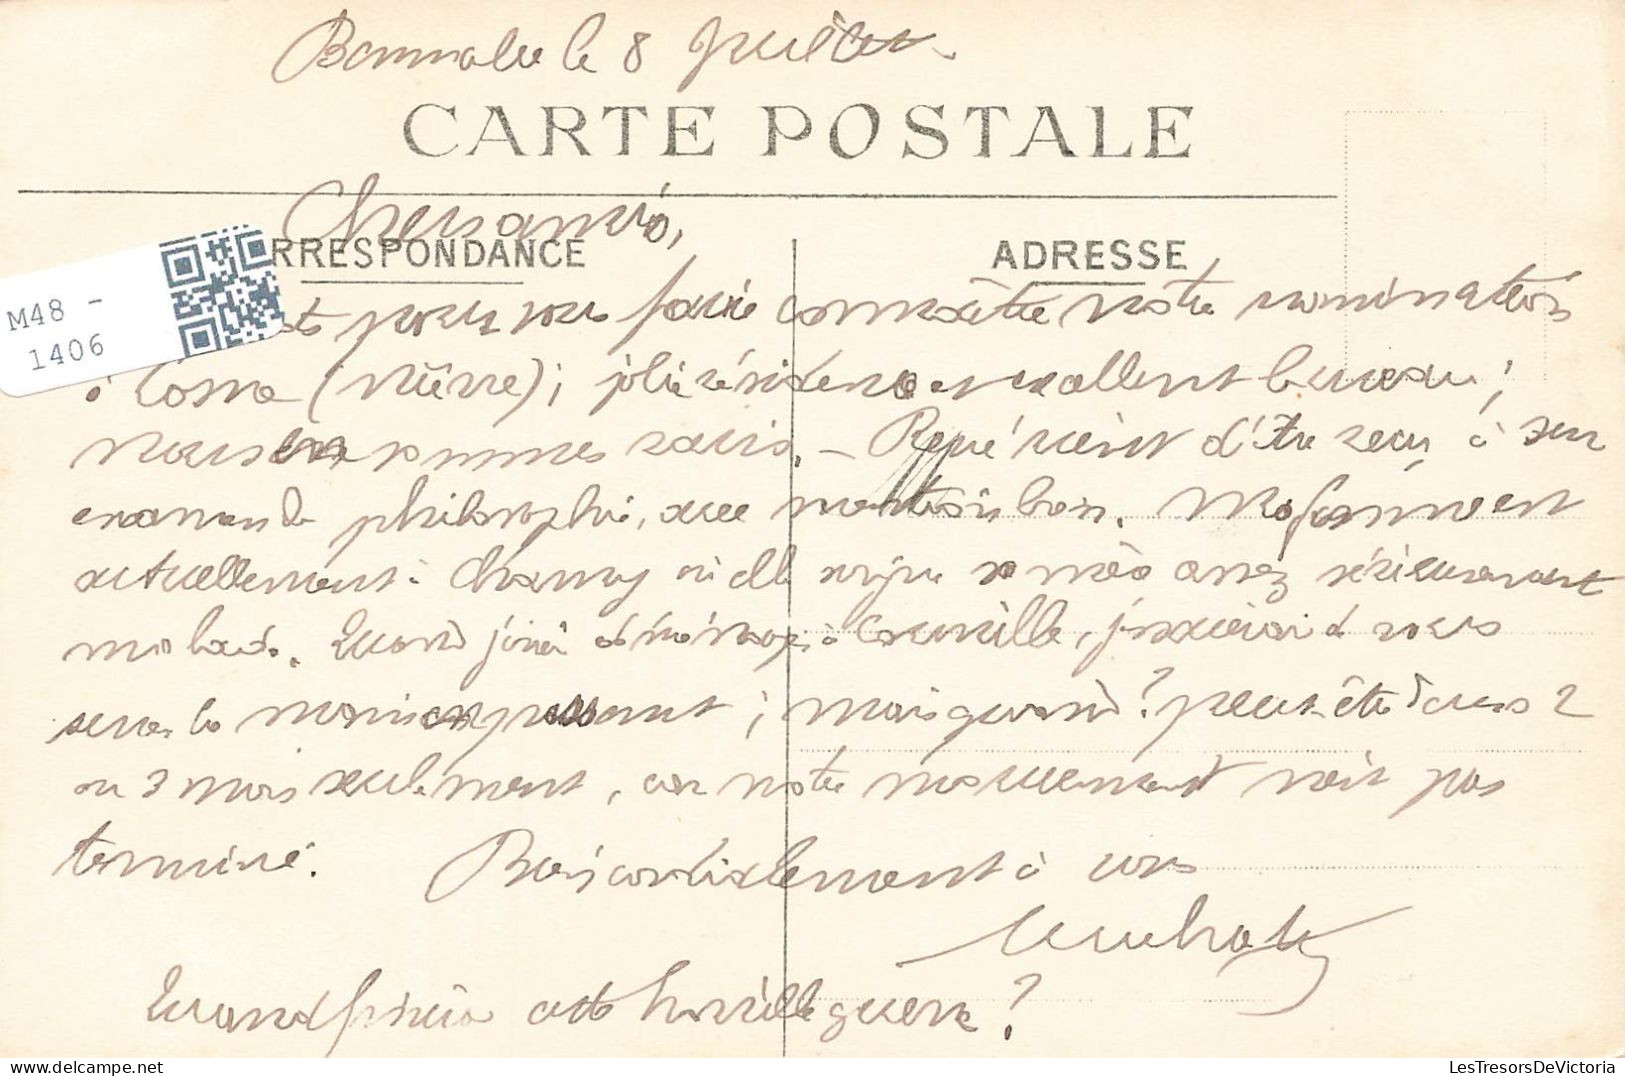 Bannalec le 8 Juillet
CARTE POSTALE
Chers amis,
RRESPONDANCE
ADRESSE
M48 -
1406
pour vous faire connaître notre nomination
à Cosne (Nièvre); jolie résidence et excellent bureau;
Nous en sommes ravis. - René vient d'être reçu à son
examen de philosophie, avec mention bien. Ma femme est
actuellement à Charny où elle soigne sa mère assez sérieusement
malade. Quand j'irai déménager à Courville, j'essaierai de vous
serrer la main en passant; mais quand? peut-être dans 2
ou 3 mois seulement, car notre mouvement n'est pas
terminé. Bien cordialement à vous
Quand finira cette horrible guerre?
LesTresorsDeVictoria